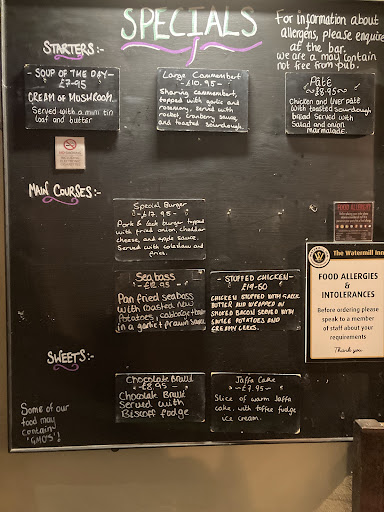 SPECIALS
For information about
allergens, please enquire
at the bar.
we are a may contain
not free from pub.
STARTERS:-
SOUP OF THE DAY-
£7-95
CREAM OF MUSHROOM
Served with a mini tin
loaf and butter
Large Camembert
- £10.95 -
Sharing camembert,
topped with garlic and
rosemary, served with
rocket, cranberry sauce,
and toasted sourdough.
Pate
~ £8.95 ~
Chicken and liver pate
with toasted sourdough
bread served with
Salad and onion
marmalade.
MAIN COURSES:-
Special Burger
- £17.95 -
Pork & leek burger topped
with fried onion, cheddar
cheese, and apple sauce.
Served with coleslaw and
fries.
FOOD ALLERGY
Sea bass
Pan fried seabass
with roasted new
potatoes, cabbage
in a garlic & prawn sauce
- STUFFED CHICKEN -
CHICKEN STUFFED WITH
BUTTER AND WRAPPED IN
SMOKED BACON SERVED WITH
POTATOES AND
CREAMY LEEKS.
The Watermill Inn
FOOD ALLERGIES
&
INTOLERANCES
Before ordering please
speak to a member
of staff about your
requirements
Thank you
SWEETS:-
Chocolate Braid
- £8.95 -
Chocolate Braid
Served with
Biscoff fudge
Jaffa Cake
- £7.95 -
Slice of warm Jaffa
cake, with toffee fudge
ice cream.
Some of our
food may
contain
"GMO'S"!